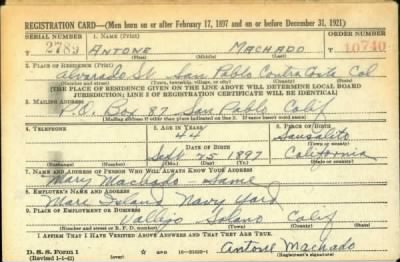 REGISTRATION CARD—(Men born on or after February 17, 1897 and on or before December 31, 1921)
SERIAL NUMBER 1. NAME (Print) ORDER NUMBER
T 2789 ANTONE MACHADO 10740
(First) (Middle) (Last)
2. PLACE OF RESIDENCE (Print)
Alvarado St San Pablo Contra Costa Cal
(Number and street) (Town, township, village, or city) (County) (State)
[THE PLACE OF RESIDENCE GIVEN ON THE LINE ABOVE WILL DETERMINE LOCAL BOARD
JURISDICTION; LINE 2 OF REGISTRATION CERTIFICATE WILL BE IDENTICAL]
3. MAILING ADDRESS
P.O. Box 87 San Pablo Calif
[Mailing address if other than place indicated on line 2. If same insert word same]
4. TELEPHONE 5. AGE IN YEARS 6. PLACE OF BIRTH
44 Sausalito
DATE OF BIRTH (Town or county)
Sept 25 1897 California
(Mo.) (Day) (Yr.) (State or country)
7. NAME AND ADDRESS OF PERSON WHO WILL ALWAYS KNOW YOUR ADDRESS
Mary Machado Same
8. EMPLOYER'S NAME AND ADDRESS
Mare Island Navy Yard
9. PLACE OF EMPLOYMENT OR BUSINESS
Vallejo Solano Calif
(Number and street or R. F. D. number) (Town) (County) (State)
I AFFIRM THAT I HAVE VERIFIED ABOVE ANSWERS AND THAT THEY ARE TRUE.
D. S. S. Form 1 GPO Antone Machado
(Revised 1-1-42) (over) (Registrant's signature)